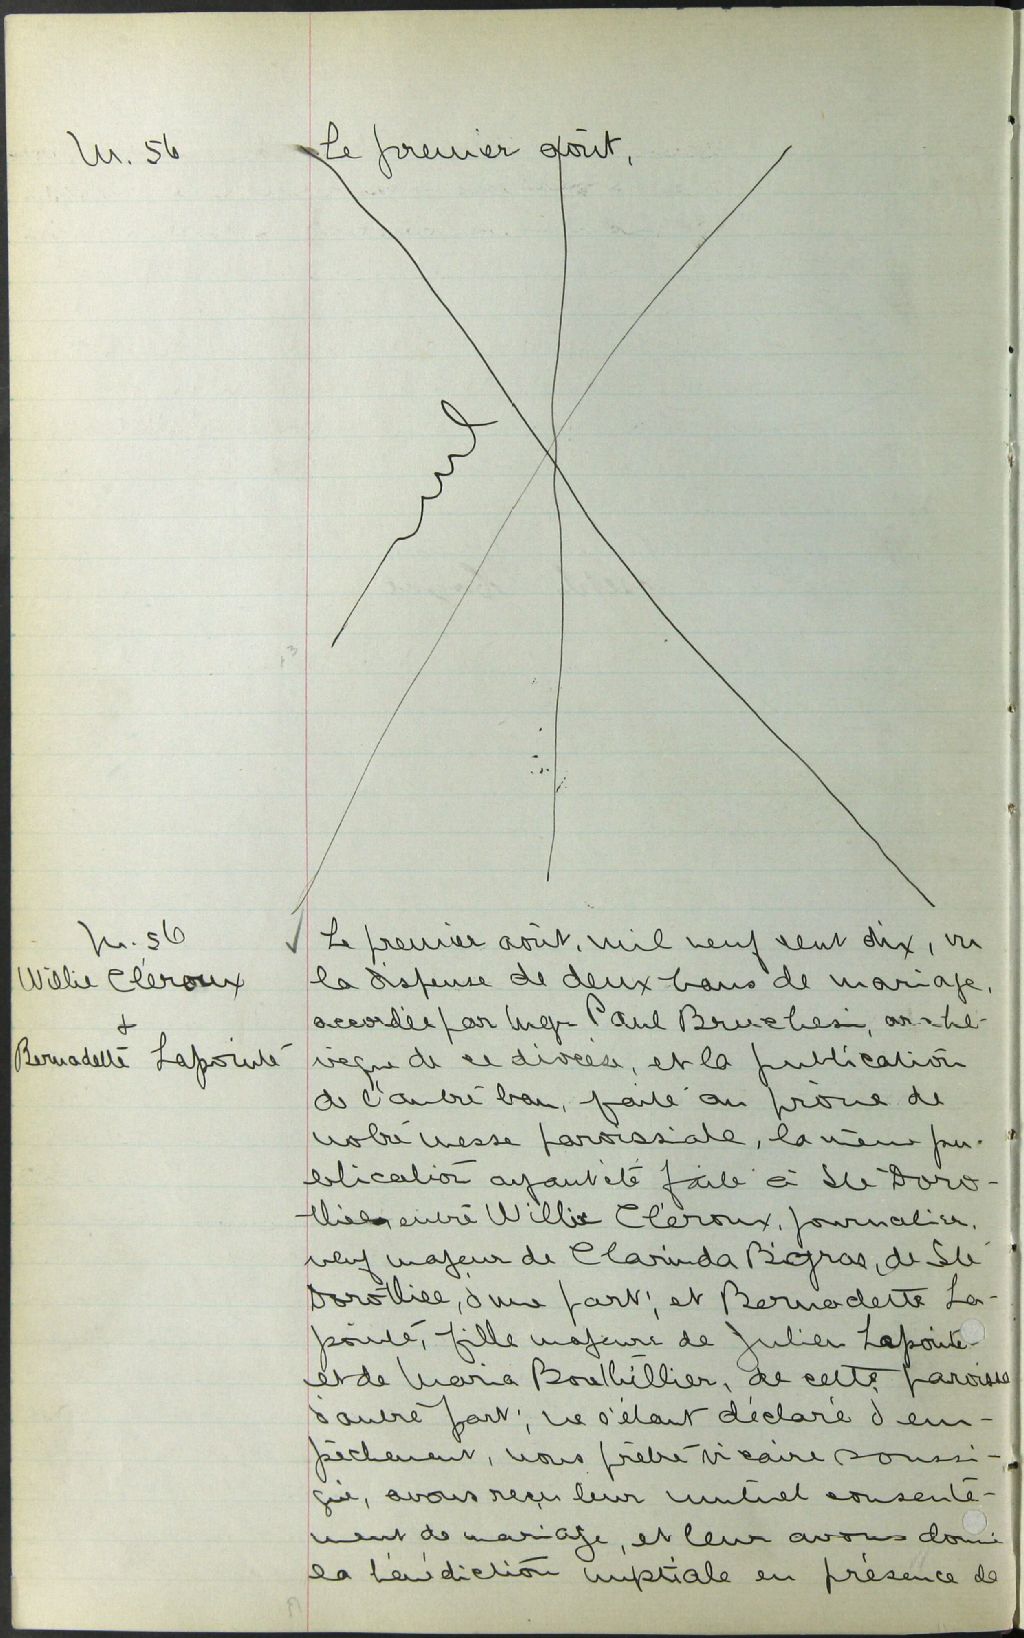 M. 56
Le premier août,
nul
M. 56
Willie Cléroux
&
Bernadette Lapointe
Le premier août, mil neuf cent dix, vu
la dispense de deux bans de mariage,
accordée par Mgr Paul Bruchesi, arche-
vêque de ce diocèse, et la publication
de l'autre ban, faite au prône de
notre messe paroissiale, la même pu-
blication ayant été faite à Ste Doro-
thée, entre Willie Cléroux, journalier,
veuf majeur de Clarinda Bigras, de Ste
Dorothée, d'une part; et Bernadette La-
pointe, fille majeure de Julien Lapointe
et de Maria Bouthillier, de cette paroisse
d'autre part; ne s'étant déclaré d'em-
pêchement, nous prêtre vicaire soussi-
gné, avons reçu leur mutuel consente-
ment de mariage, et leur avons donné
la bénédiction nuptiale en présence de